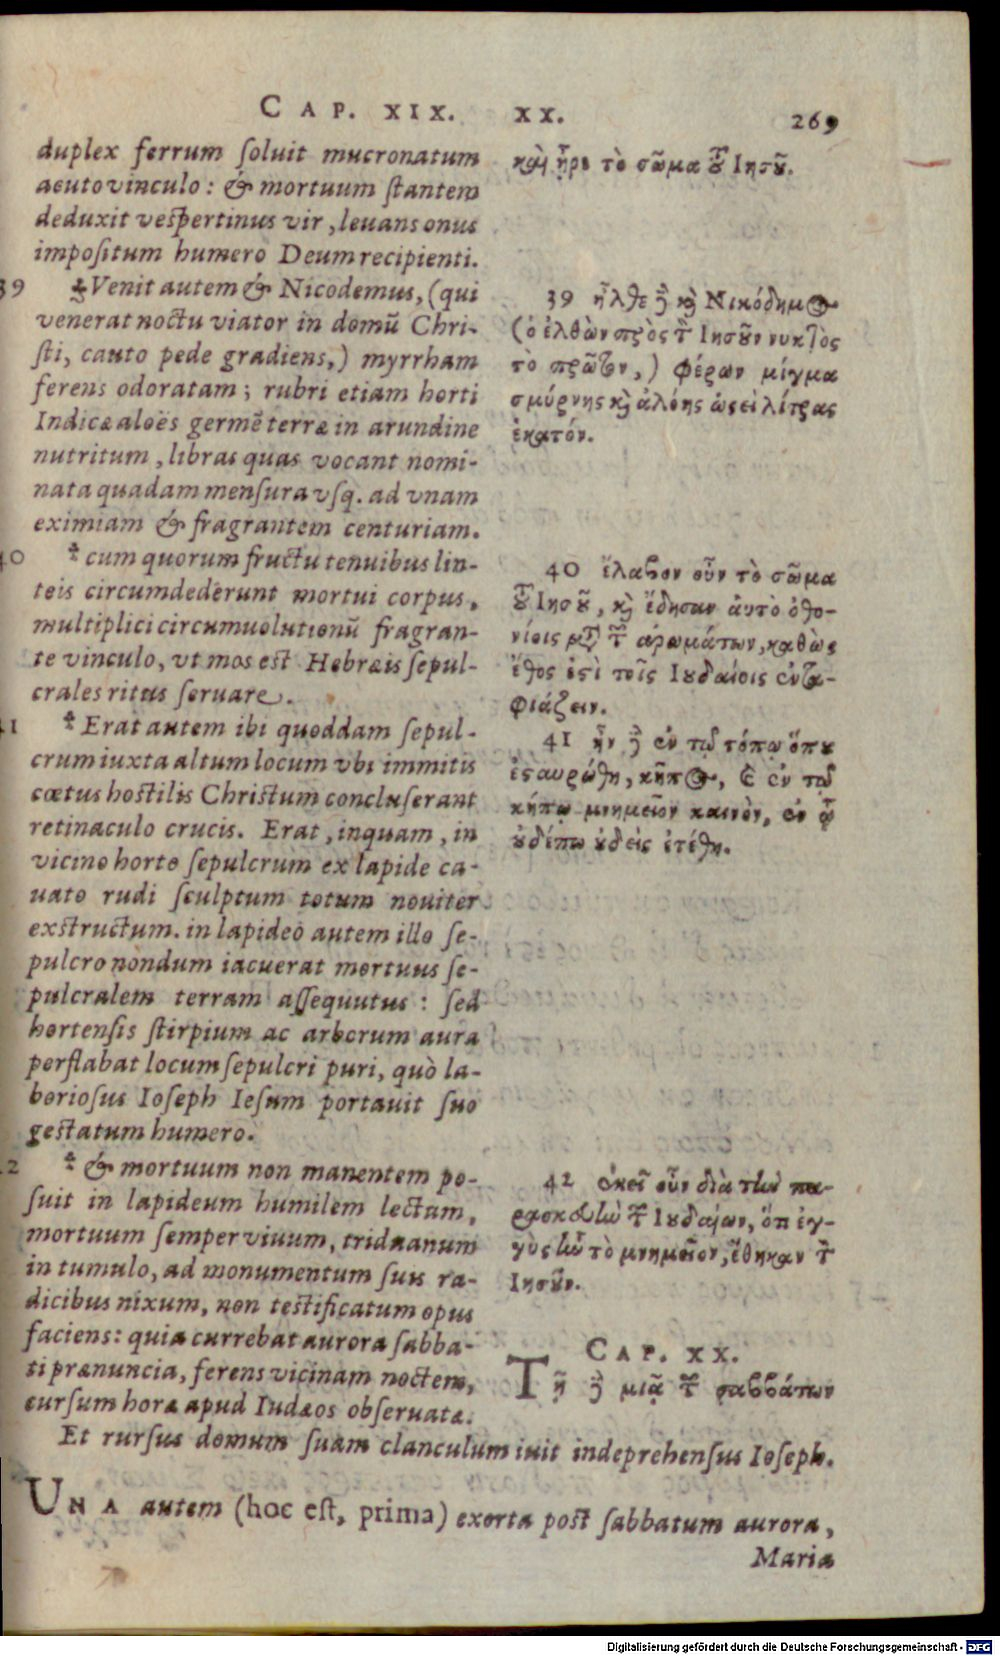 CAP. XIX. XX. 269
duplex ferrum ſoluit mucronatum
acuto vinculo : & mortuum ſtantem
deduxit veſpertinus vir , leuans onus
impoſitum humero Deum recipienti.
39 Venit autem & Nicodemus, (qui
venerat noctu viator in domũ Chri-
ſti, cauto pede gradiens,) myrrham
ferens odoratam ; rubri etiam horti
Indicæ aloës germẽ terræ in arundine
nutritum , libras quas vocant nomi-
nata quadam menſura vſq. ad vnam
eximiam & fragrantem centuriam.
40 cum quorum fructu tenuibus lin-
teis circumdederunt mortui corpus,
multiplici circumuolutionũ fragran-
te vinculo, vt mos est Hebræis ſepul-
crales ritus ſeruare.
41 Erat autem ibi quoddam ſepul-
crum iuxta altum locum vbi immitis
cœtus hostilis Christum concluſerant
retinaculo crucis. Erat , inquam , in
vicino horto ſepulcrum ex lapide ca-
uato rudi ſculptum totum nouiter
exstructum. in lapideo autem illo ſe-
pulcro nondum iacuerat mortuus ſe-
pulcralem terram aſſequutus : ſed
hortenſis ſtirpium ac arborum aura
perflabat locum ſepulcri puri, quò la-
borioſus Ioſeph Ieſum portauit ſuo
gestatum humero.
42 & mortuum non manentem po-
ſuit in lapideum humilem lectum,
mortuum ſemper viuum, triduanum
in tumulo, ad monumentum ſuis ra-
dicibus nixum, non testificatum opus
faciens: quia currebat aurora ſabba-
ti prænuncia, ferens vicinam noctem,
curſum horæ apud Iudæos obſeruatæ.
Et rurſus domum ſuam clanculum iuit indeprehenſus Ioſeph.
VNA autem (hoc eſt, prima) exorta post ſabbatum aurora,
Maria
καὶ ἦρε τὸ σῶμα τοῦ Ιησοῦ.
39 ἦλθε δὲ καὶ Νικόδημος
(ὁ ἐλθὼν πρὸς τὸν Ιησοῦν νυκτὸς
τὸ πρῶτον, ) φέρων μίγμα
σμύρνης καὶ ἀλόης ὡσεὶ λίτρας
ἑκατόν.
40 ἔλαβον οὖν τὸ σῶμα
τοῦ Ιησοῦ, καὶ ἔδησαν ἀυτὸ ὀθο-
νίοις μετὰ τῶν ἀρωμάτων, καθὼς
ἔθος ἐστὶ τοῖς Ιουδαίοις ἐντα-
φιάζειν.
41 ἦν δὲ ἐν τῷ τόπῳ ὅπου
ἐσταυρώθη, κῆπος, καὶ ἐν τῷ
κήπῳ μνημεῖον καινὸν, ἐν ᾧ
οὐδέπω οὐδεὶς ἐτέθη.
42 ἐκεῖ οὖν διὰ τὴν πα-
ρασκευὴν τῶν Ιουδαίων, ὅτι ἐγ-
γὺς ἦν τὸ μνημεῖον, ἔθηκαν τὸν
Ιησοῦν.
CAP. XX.
Τῇ δὲ μιᾷ τῶν σαββάτων
Digitalisierung gefördert durch die Deutsche Forschungsgemeinschaft - DFG